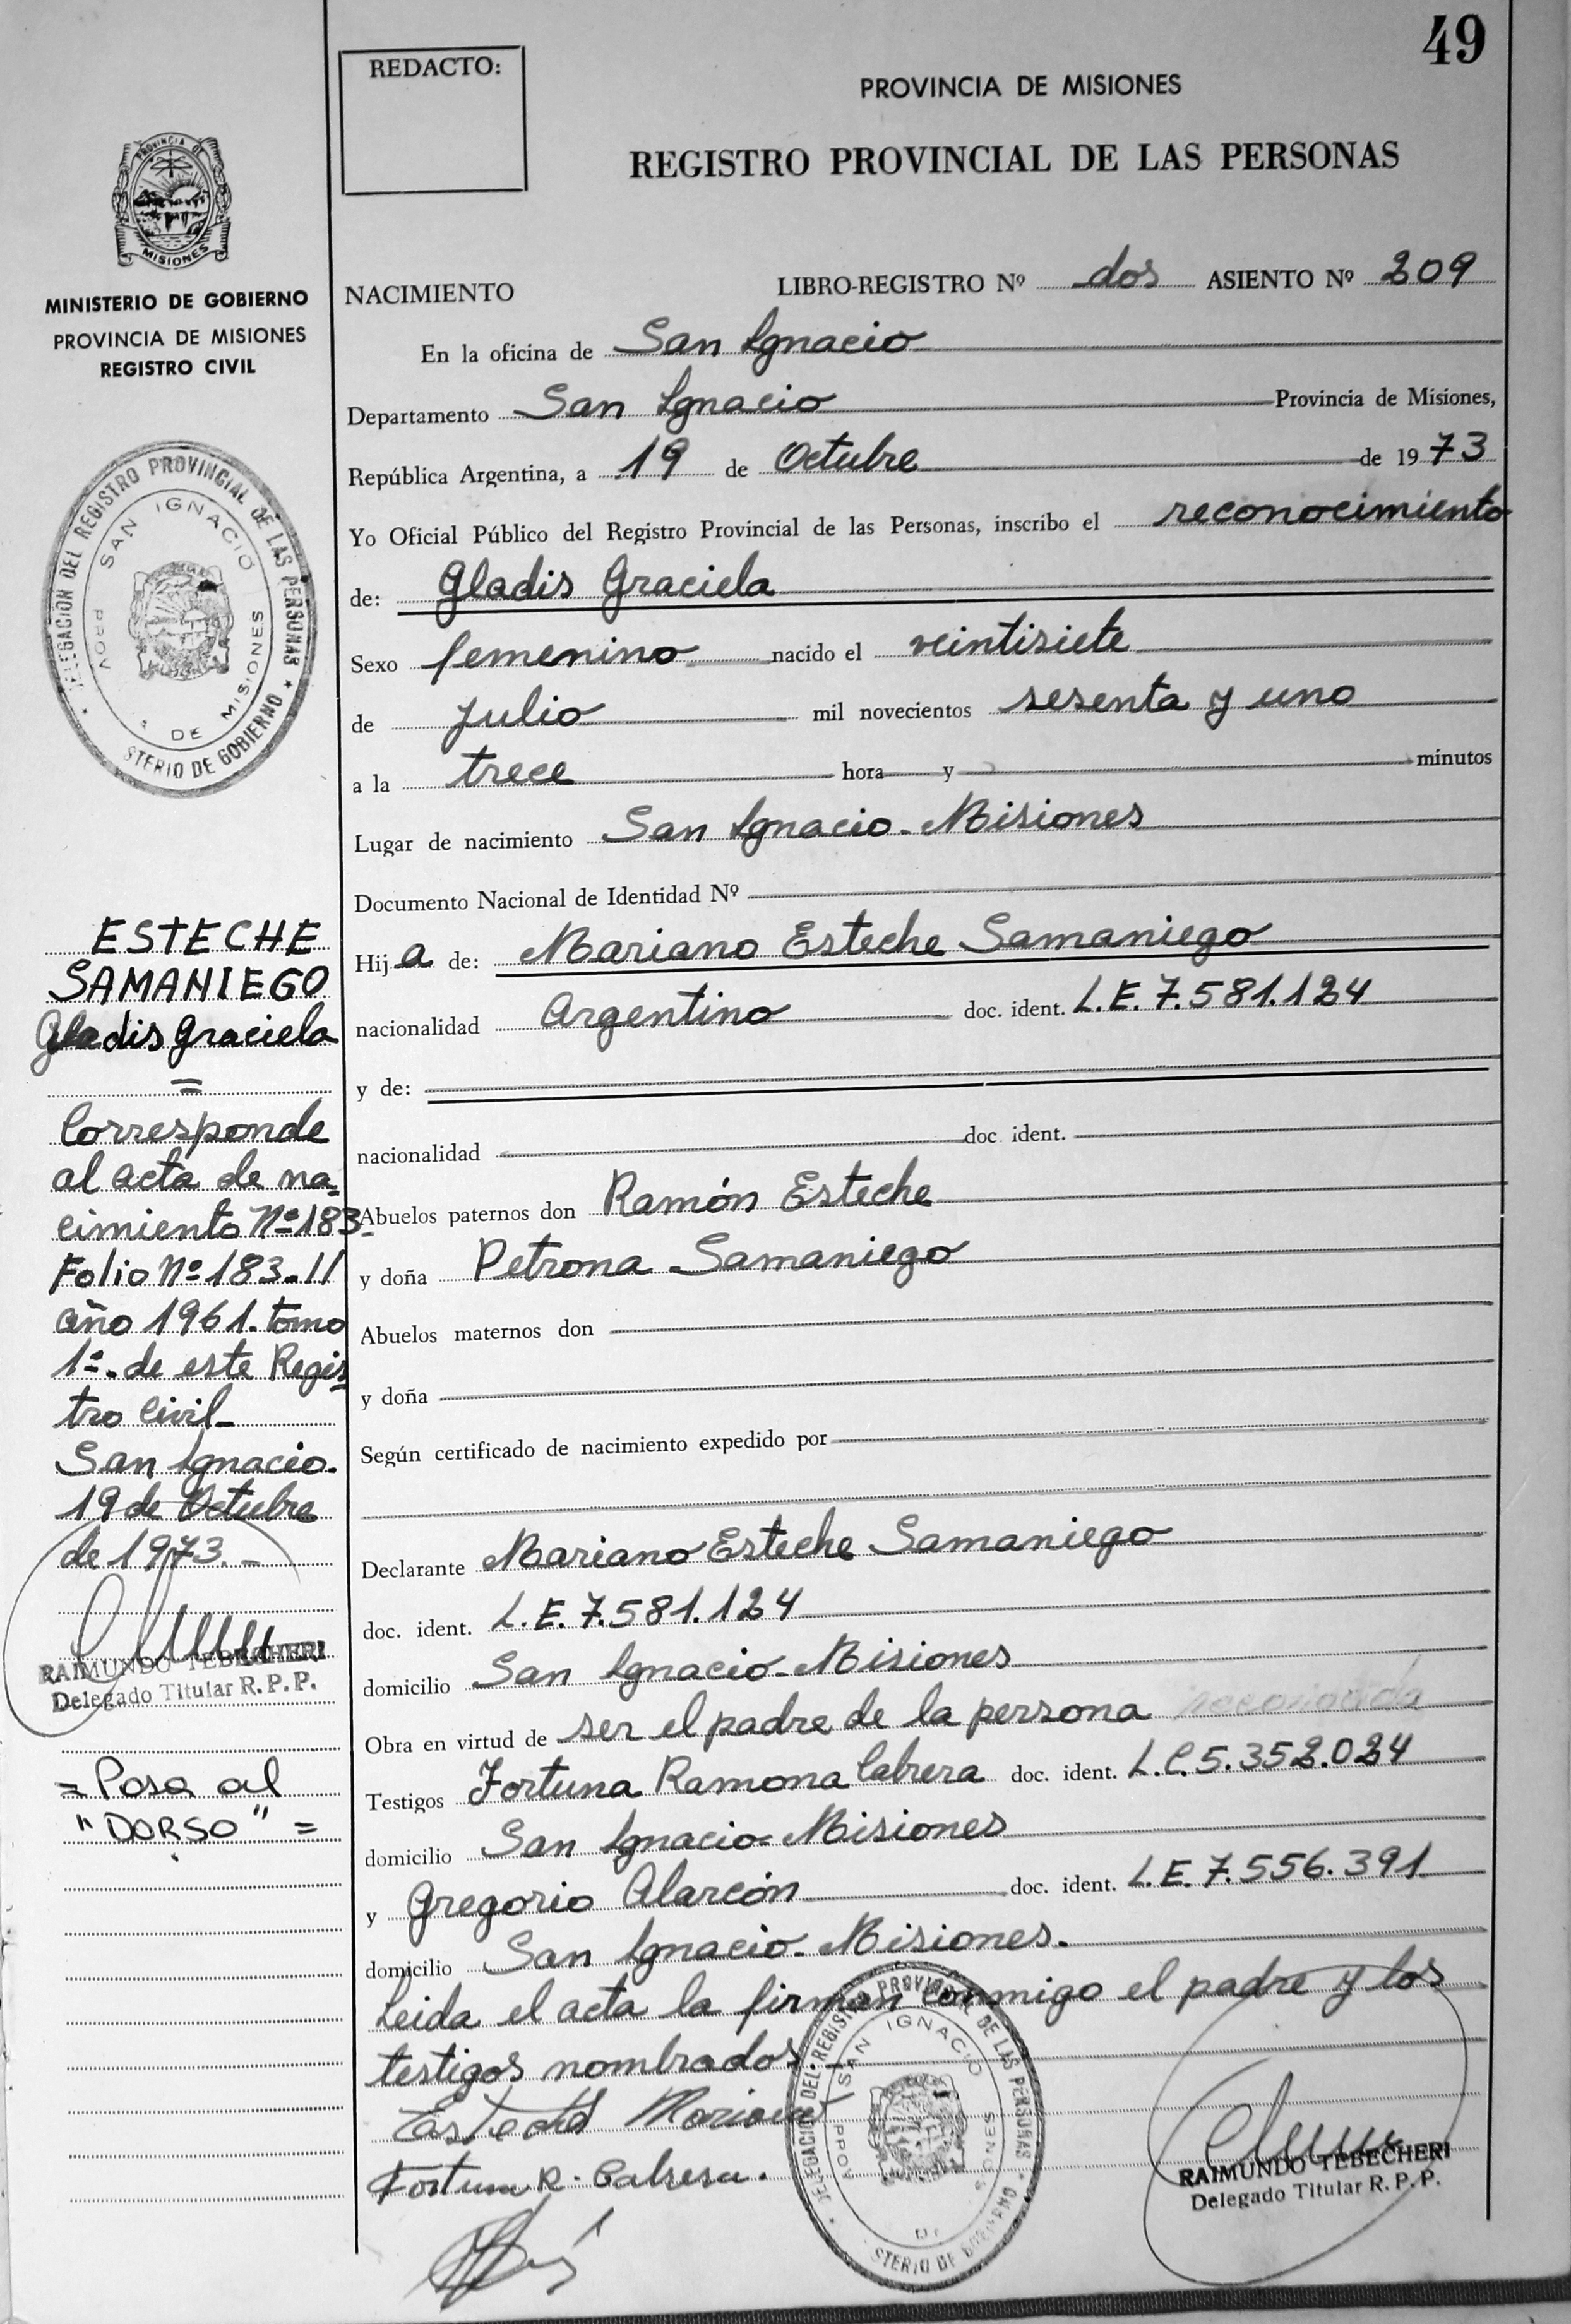 49
REDACTO:
PROVINCIA DE MISIONES
REGISTRO PROVINCIAL DE LAS PERSONAS
PROVINCIA DE
MISIONES
MINISTERIO DE GOBIERNO
PROVINCIA DE MISIONES
REGISTRO CIVIL
NACIMIENTO LIBRO-REGISTRO Nº dos ASIENTO Nº 209
En la oficina de San Ignacio
Departamento San Ignacio Provincia de Misiones,
República Argentina, a 19 de Octubre de 1973
Yo Oficial Público del Registro Provincial de las Personas, inscribo el reconocimiento
de: Gladis Graciela
Sexo femenino nacido el veintisiete
de Julio mil novecientos sesenta y uno
a la trece hora y minutos
Lugar de nacimiento San Ignacio - Misiones
Documento Nacional de Identidad Nº
Hija de: Mariano Esteche Samaniego
nacionalidad Argentino doc. ident. L.E. 7.581.124
y de:
nacionalidad doc. ident.
Abuelos paternos don Ramón Esteche
y doña Petrona Samaniego
Abuelos maternos don
y doña
Según certificado de nacimiento expedido por
Declarante Mariano Esteche Samaniego
doc. ident. L.E. 7.581.124
domicilio San Ignacio - Misiones
Obra en virtud de ser el padre de la persona reconocida
Testigos Fortuna Ramona Cabrera doc. ident. L.C. 5.352.024
domicilio San Ignacio - Misiones
y Gregorio Alarcón doc. ident. L.E. 7.556.391
domicilio San Ignacio - Misiones.
Leida el acta la firman conmigo el padre y los
testigos nombrados
Fortuna R. Cabrera.
DELEGACION DEL REGISTRO PROVINCIAL DE LAS PERSONAS
SAN IGNACIO
STERIO DE GOBIERNO
RAIMUNDO TEBECHERI
Delegado Titular R. P. P.
DELEGACION DEL REGISTRO PROVINCIAL DE LAS PERSONAS
SAN IGNACIO
PROV
DE MISIONES
STERIO DE GOBIERNO
ESTECHE
SAMANIEGO
Gladis Graciela
=
Corresponde
al acta de na-
cimiento Nº 183-
Folio Nº 183-11
año 1961. tomo
1º. de este Regis
tro Civil-
San Ignacio.
19 de Octubre
de 1973.-
RAIMUNDO TEBECHERI
Delegado Titular R. P. P.
= Pasa al
"DORSO" =